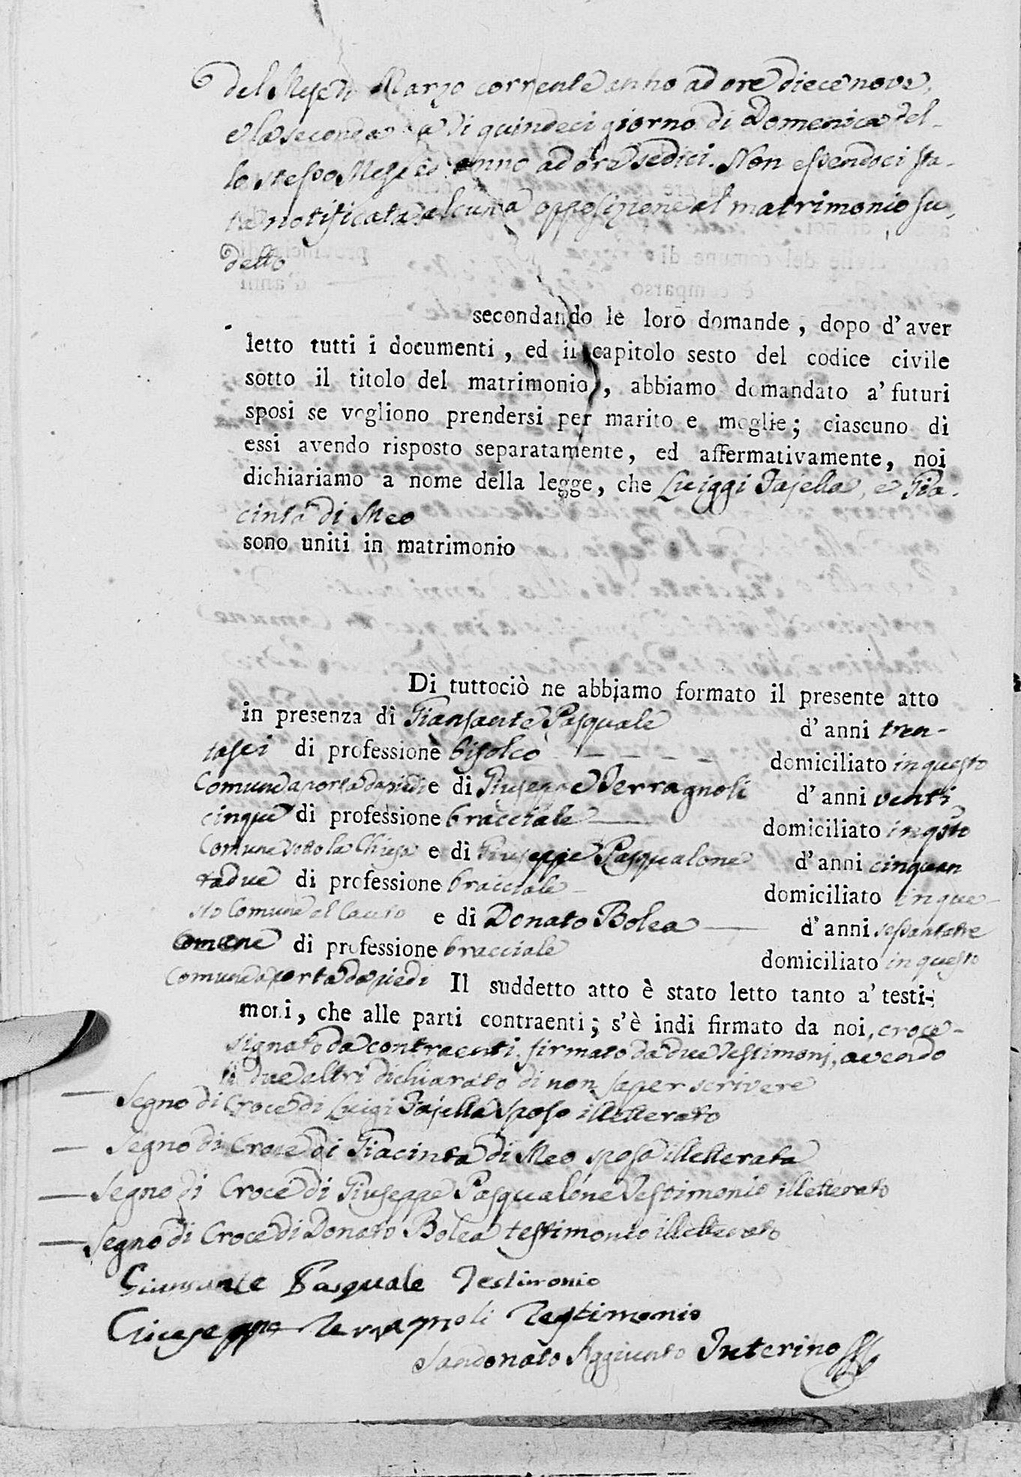 del Mese di Marzo corrente anno ad ore diecenove,
e la seconda a di quindeci giorno di Domenica del-
lo stesso Mese ed anno ad ore sedici. Non essendoci sta-
ta notificata alcuna opposizione al matrimonio su,
detto
secondando le loro domande, dopo d'aver
letto tutti i documenti, ed il capitolo sesto del codice civile
sotto il titolo del matrimonio, abbiamo domandato a' futuri
sposi se vogliono prendersi per marito e moglie; ciascuno di
essi avendo risposto separatamente, ed affermativamente, noi
dichiariamo a nome della legge, che Luiggi Fasella, e Gia-
cinta di Meo
sono uniti in matrimonio
Di tuttociò ne abbiamo formato il presente atto
in presenza di Giansante Pasquale d'anni tren-
tasei di professione bifolco domiciliato in questo
Comune a porta da piedi e di Giuseppe Terragnoli d'anni venti
cinque di professione bracciale domiciliato in qsto
Comune sotto la Chiesa e di Giuseppe Pasqualone d'anni cinquan
tadue di professione bracciale domiciliato in que-
sto Comune al e di Donato Bolea d'anni sessantatre
di professione bracciale domiciliato in questo
Comune a porta da piedi Il suddetto atto è stato letto tanto a' testi-
monj, che alle parti contraenti; s'è indi firmato da noi, croce-
signato da contraenti, firmato da due Testimonj, avendo
li due altri dichiarato di non saper scrivere
— Segno di Croce di Luigi Fasella sposo illetterato
— Segno di Croce di Giacinta di Meo sposa illetterata
— Segno di Croce di Giuseppe Pasqualone Testimonio illetterato
— Segno di Croce di Donato Bolea testimonio illetterato
Giansante Pasquale Testimonio
Giuseppe Terragnoli Testimonio
Sandonato Aggiunto Interino